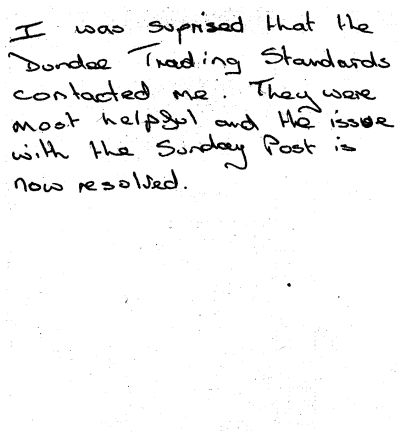 I was suprised that the
Dundee Trading Standards
contacted me. They were
most helpful and the issue
with the Sunday Post is
now resolved.